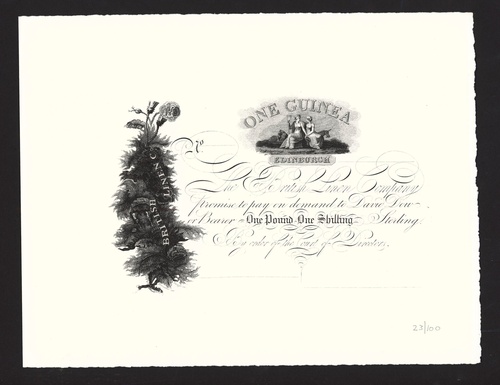 ONE GUINEA
EDINBURGH
BRITISH LINEN Co
No
The British Linen Company
Promise to pay on demand to David Dow
or Bearer One Pound One Shilling Sterling
By order of the Court of Directors
23/100